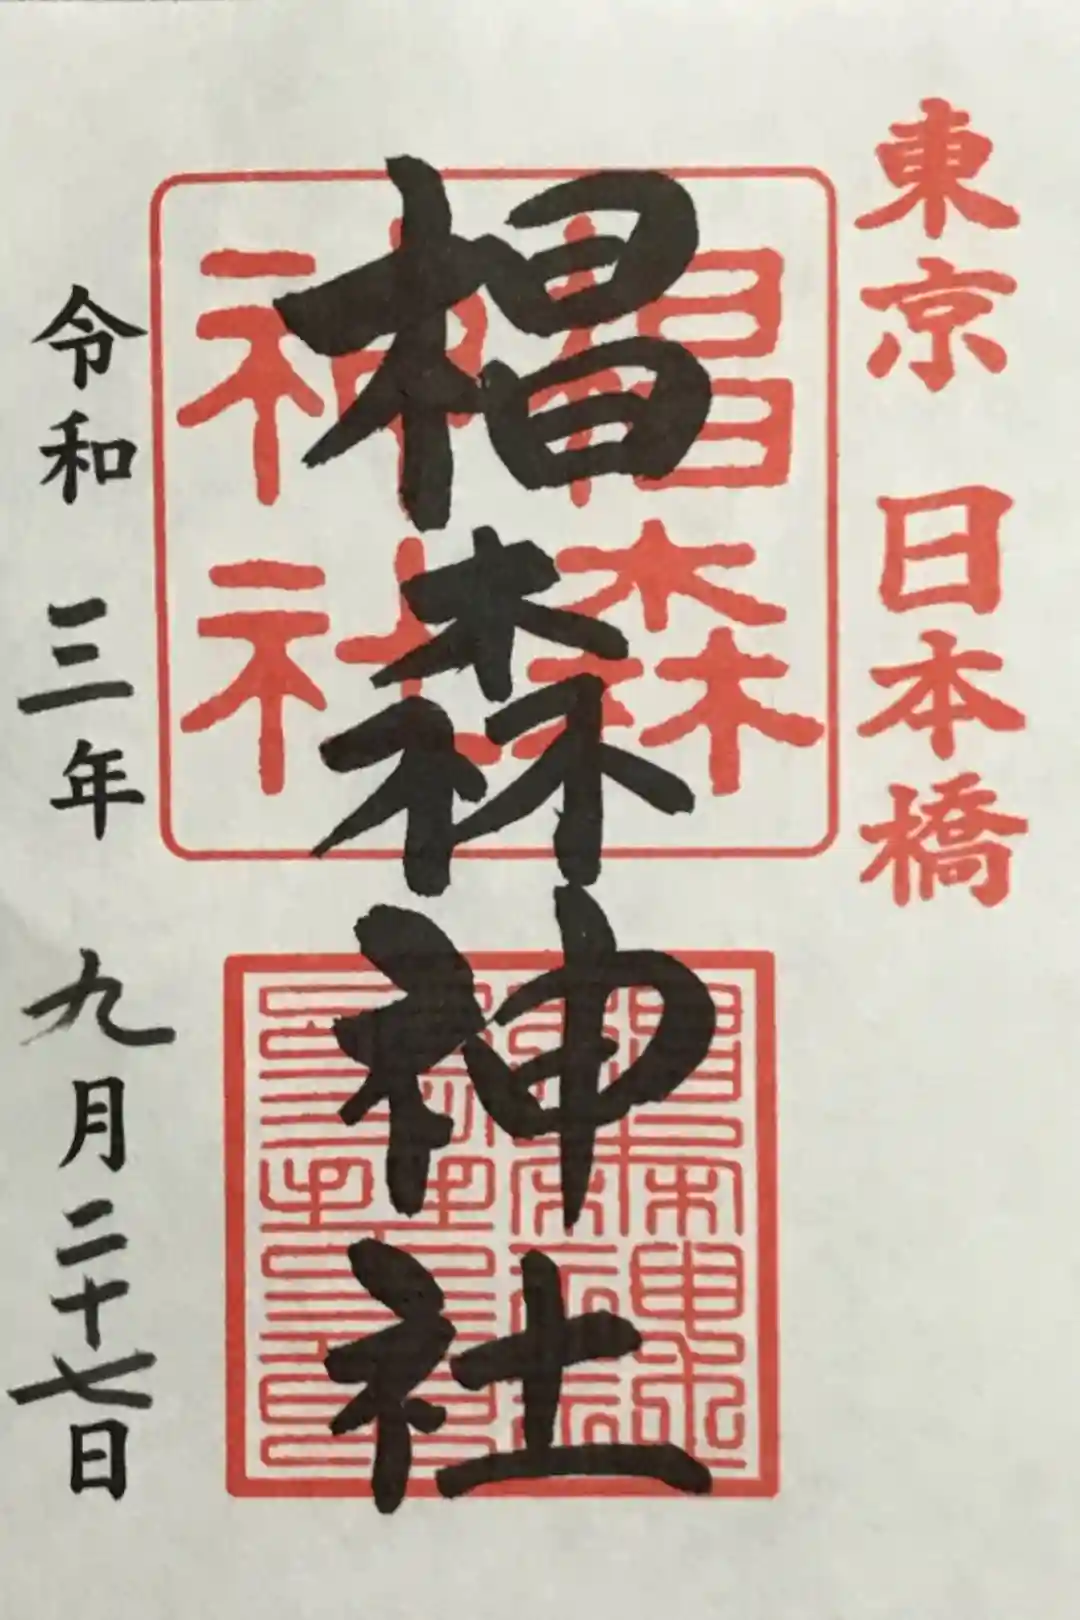 東京 日本橋
椙森神社
椙森
神社
令和 三年 九月二十七日